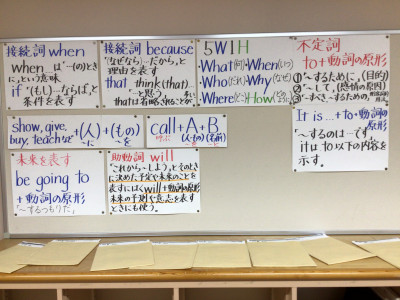 接続詞 when
when…は“…(の)とき
に”という意味
if “(もし)…ならば”と
条件を表す
接続詞 because
(なぜなら)…だから。と
理由を表す
that think(that)…
…と思う
thatは省略
5W1H
What(何)・When(いつ)
Who(だれ)・Why(なぜ)
Where(どこ)How(どう)
不定詞
to+動詞の原形
①“〜するために”(目的)
②“〜して”(感情の原因)
③“〜すべき、〜するための”
It is…to+動詞の
原形
“〜するのは…です”
itはto以下の内容を
示す。
show, give,
buy, teachなど+(人)+(もの)
〜に 〜を
call+A+B
呼ぶ (人・もの)(名前)
〜を 〜と
未来を表す
be going to
+動詞の原形
“〜するつもりだ”
助動詞 will
“これから〜しよう”とそのとき
に決めた予定や未来のことを
表すにはwill+動詞の原形
未来の予測や意志を表す
ときにも使う。